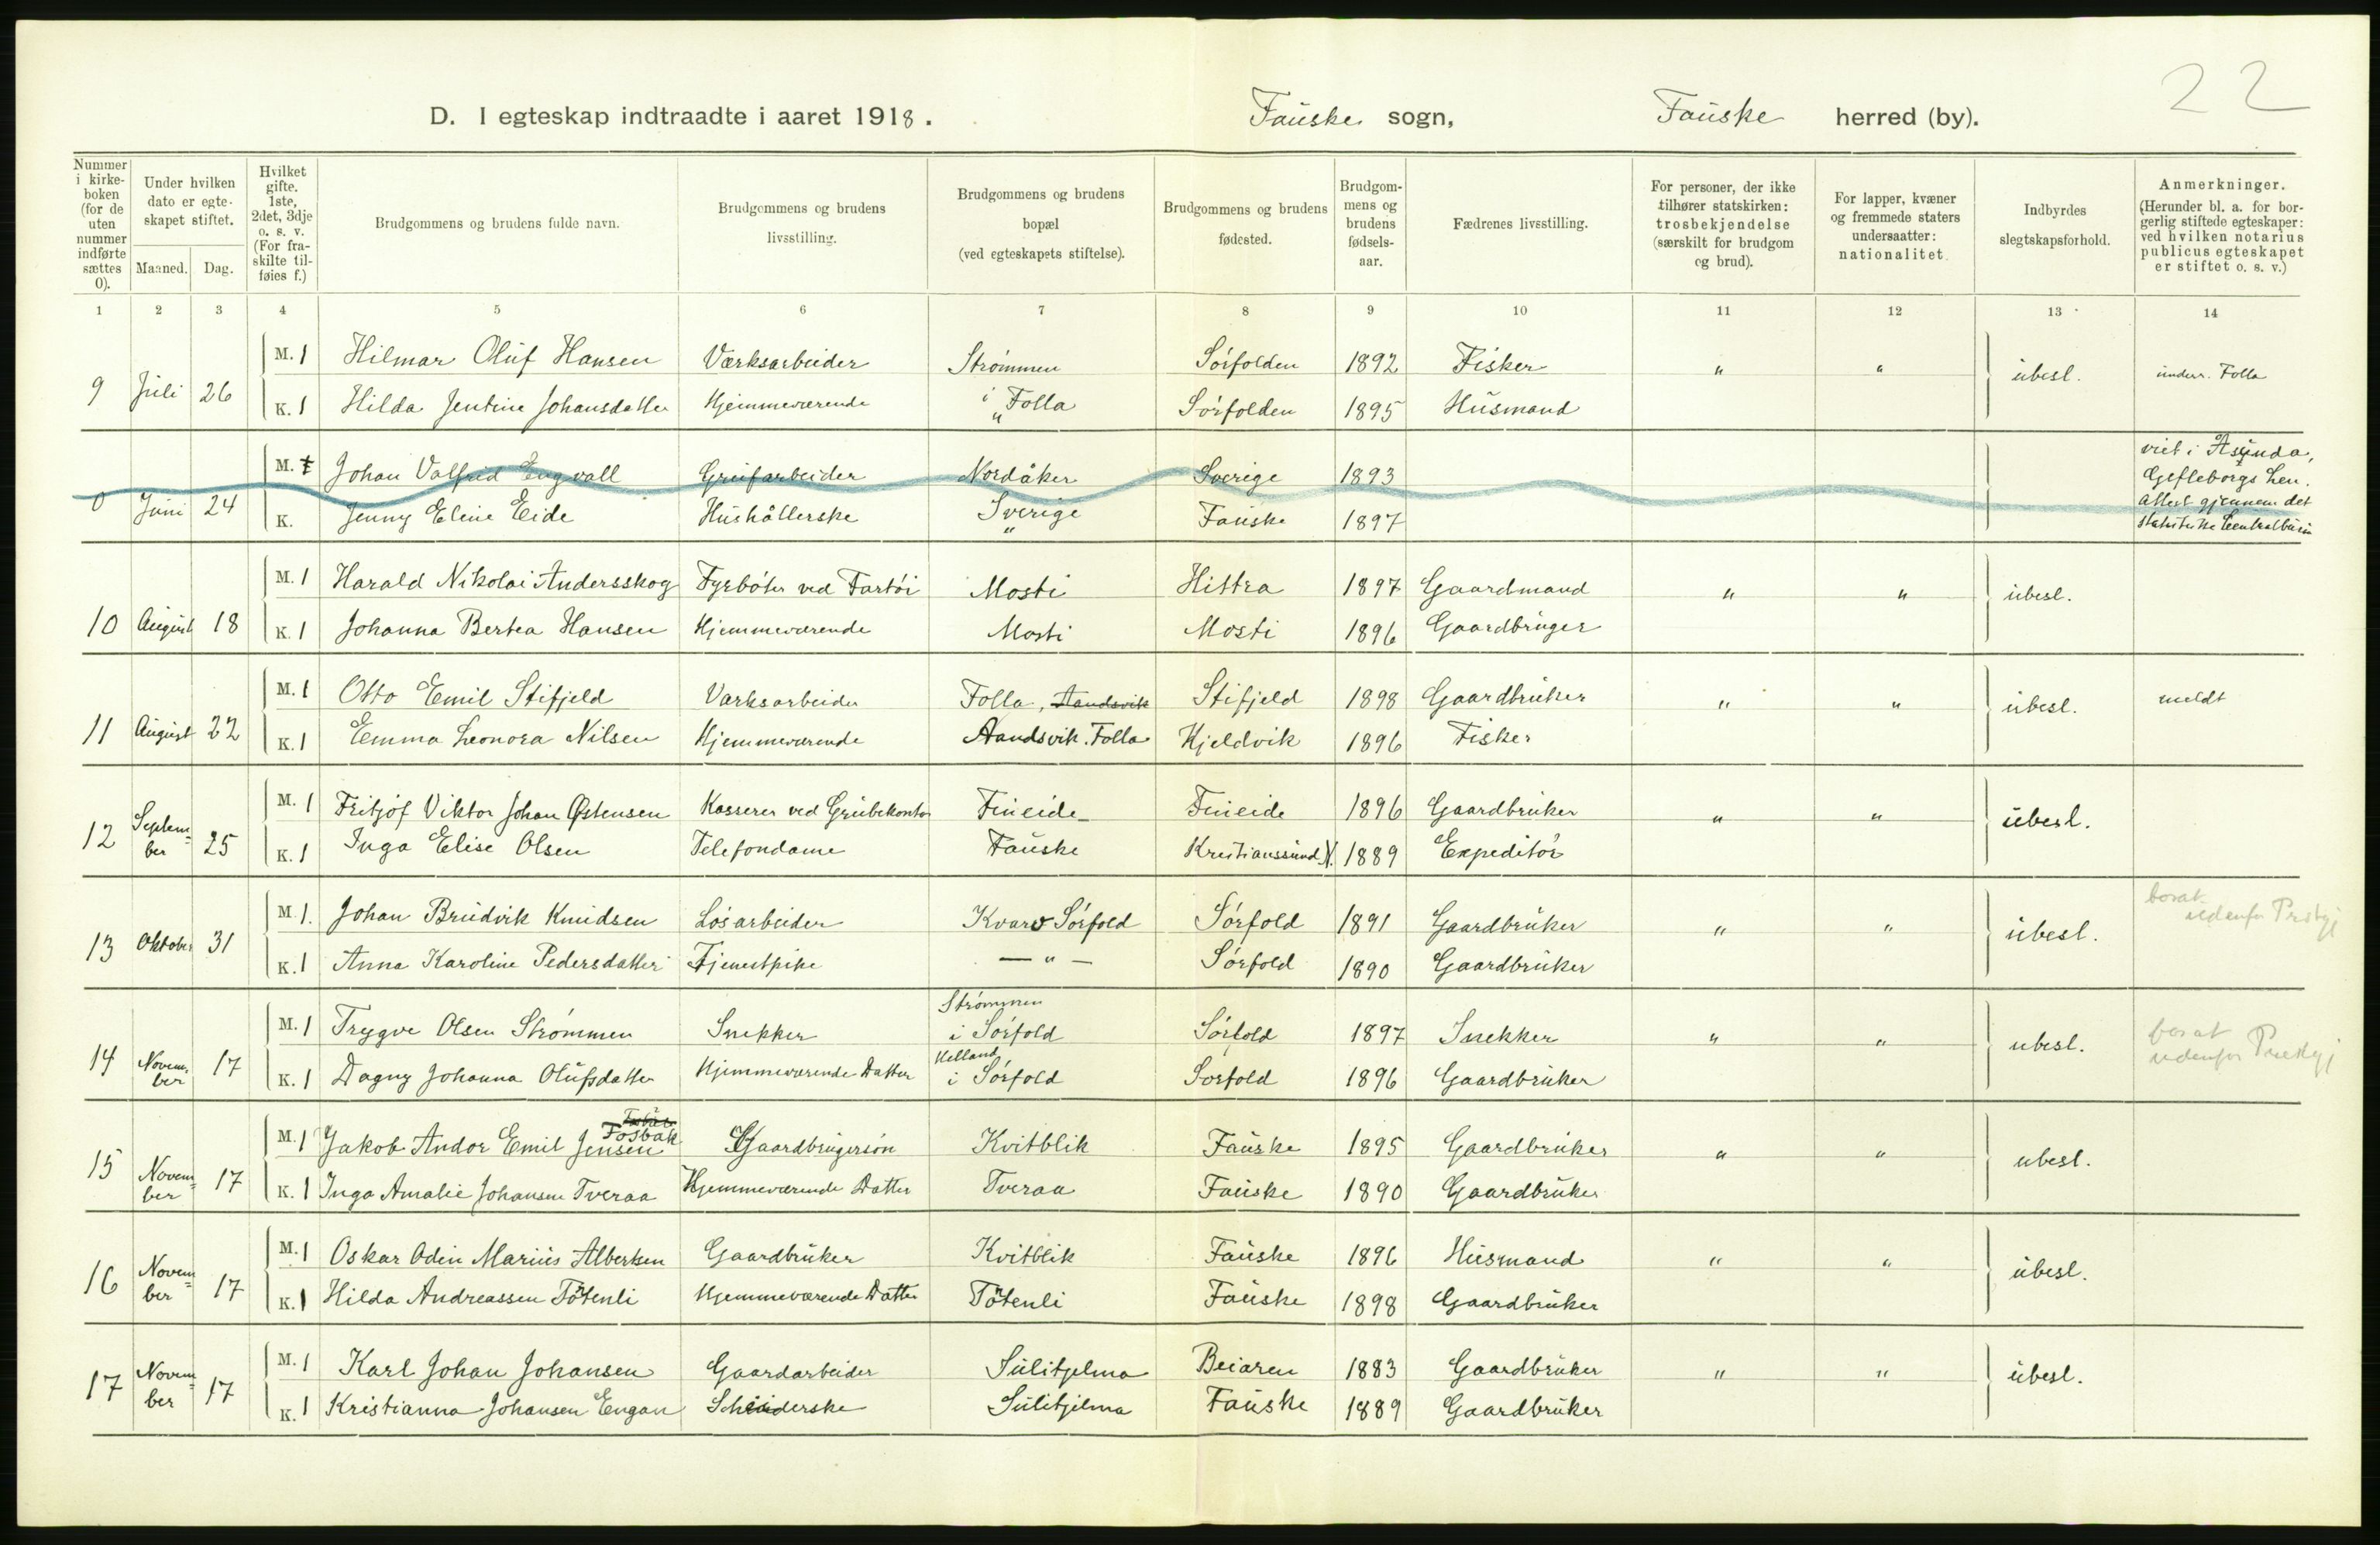 22
D. I egteskap indtraadte i aaret 1918. Fauske sogn, Fauske herred (by).
Nummer i kirke-boken (for de uten nummer indførte sættes 0).
Under hvilken dato er egte-skapet stiftet.
Maaned. Dag.
Hvilket gifte. 1ste, 2det, 3dje o. s. v. (For fra-skilte til-føies f.)
Brudgommens og brudens fulde navn.
Brudgommens og brudens livsstilling.
Brudgommens og brudens bopæl (ved egteskapets stiftelse).
Brudgommens og brudens fødested.
Brudgom-mens og brudens fødsels-aar.
Fædrenes livsstilling.
For personer, der ikke tilhører statskirken: trosbekjendelse (særskilt for brudgom og brud).
For lapper, kvæner og fremmede staters undersaatter: nationalitet.
Indbyrdes slegtskapsforhold.
Anmerkninger. (Herunder bl. a. for bor-gerlig stiftede egteskaper: ved hvilken notarius publicus egteskapet er stiftet o. s. v.)
1 2 3 4 5 6 7 8 9 10 11 12 13 14
M. 1 Hilmar Oluf Hansen Værksarbeider Strømmen Sørfolden 1892 Fisker " "
9 Juli 26 ubesl. underr. Folla
K. 1 Hilda Jentine Johansdatter Hjemmeværende i Folla " Sørfolden 1895 Husmand
M. 1 Johan Valfrid Engvall Grufarbeider Nordåker Sverige 1893
0 Juni 24 viet i Asunda, Gefleborgs Len. Attest gjennem det statistiske Centralbüro
K. Jenny Eline Eide Hushållerske Sverige " Fauske 1897
M. 1 Harald Nikolai Andersskog Fyrbøter ved Fartøi Mosti Hittra 1897 Gaardmand " "
10 August 18 ubesl.
K. 1 Johanna Bertea Hansen Hjemmeværende Mosti Mosti 1896 Gaardbruger
M. 1 Otto Emil Stifjeld Værksarbeider Folla, Aandsvik Stifjeld 1898 Gaardbruker " "
11 August 22 ubesl. meldt
K. 1 Emma Leonora Nilsen Hjemmeværende Aandsvik. Folla Kjeldvik 1896 Fisker
M. 1 Fritjof Viktor Johan Østensen Kasserer ved Grubekontor Fineide Fineide 1896 Gaardbruker " "
12 Septem=ber 25 ubesl.
K. 1 Inga Elise Olsen Telefondame Fauske Kristianssund N. 1889 Expeditør
M. 1. Johan Brudvik Knudsen Løsarbeider Kvarv Sørfold Sørfold 1891 Gaardbruker " "
13 Oktober 31 ubesl. bosat udenfor Prstgj
K. 1 Anna Karoline Pedersdatter Tjenestpike — " — Sørfold 1890 Gaardbruker
M. 1 Trygve Olsen Strømmen Snekker Strømmen i Sørfold Sørfold 1897 Snekker " "
14 Novem=ber 17 ubesl. bosat udenfor Prestgj
K. 1 Dagny Johanna Olufsdatter Hjemmeværende Datter Kelland i Sørfold Sørfold 1896 Gaardbruker
M. 1 Jakob Andor Emil Jensen Fosbak Gaardbrugersøn Kvitblik Fauske 1895 Gaardbruker " "
15 Novem=ber 17 ubesl.
K. 1 Inga Amalie Johansen Tveraa Hjemmeværende Datter Tveraa Fauske 1890 Gaardbruker
M. 1 Oskar Odin Marius Albertsen Gaardbruker Kvitblik Fauske 1896 Husmand " "
16 Novem=ber 17 ubesl.
K. 1 Hilda Andreassen Tötenli Hjemmeværende Datter Tötenli Fauske 1898 Gaardbruker
M. 1 Karl Johan Johansen Gaardarbeider Sulitjelma Beiaren 1883 Gaardbruker " "
17 Novem=ber 17 ubesl.
K. 1 Kristianna Johansen Engan Sulitjelma Fauske 1889 Gaardbruker